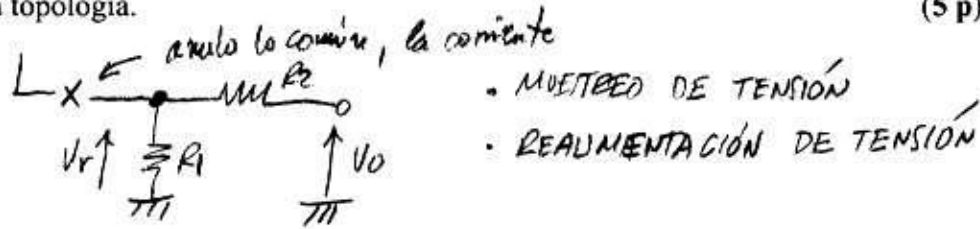 topología. (5 p)
anulo lo común, la corriente
L x R2
• MUESTREO DE TENSIÓN
Vr R1 Vo
• REALIMENTACIÓN DE TENSIÓN